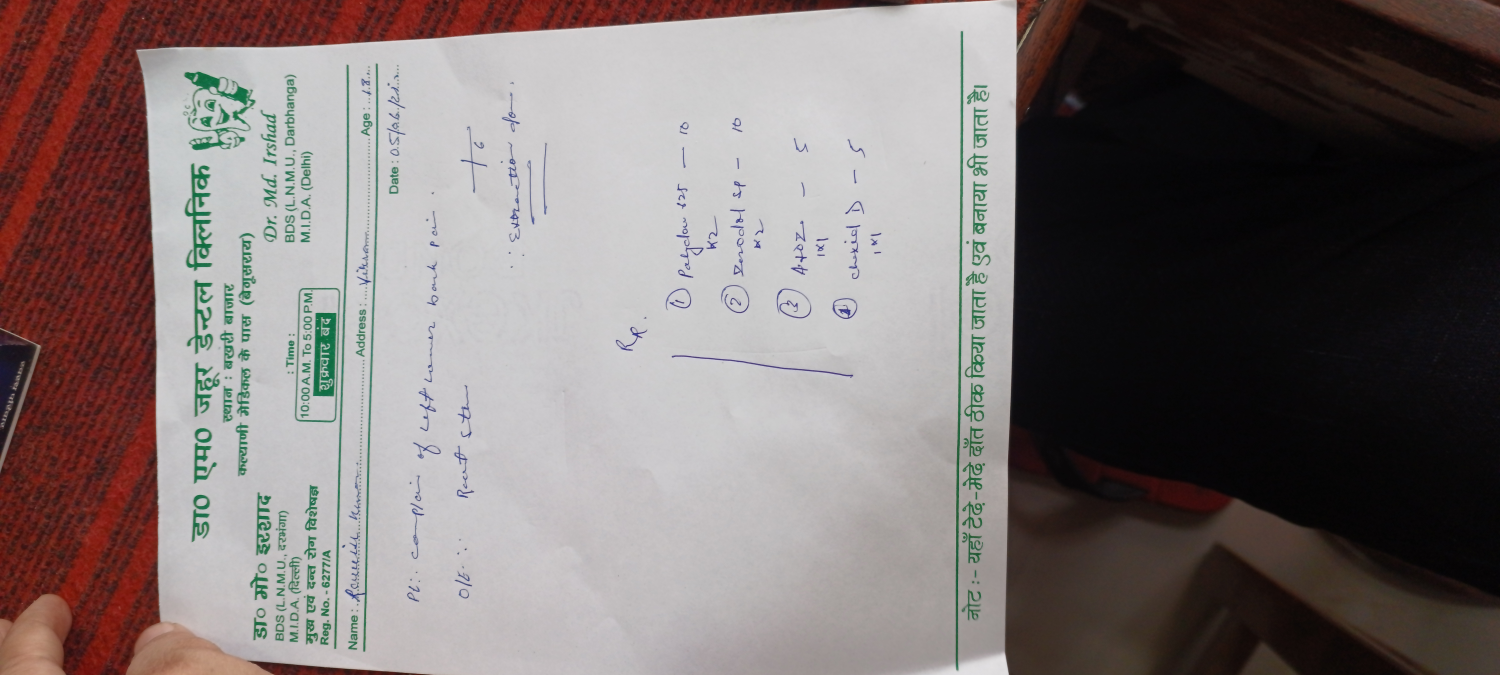 डा० एम० जहूर डेन्टल क्लिनिक
स्थान : बखरी बाजार
कल्याणी मेडिकल के पास (बेगूसराय)
डा० मो० इरशाद
BDS (L.N.M.U., दरभंगा)
M.I.D.A. (दिल्ली)
मुख एवं दन्त रोग विशेषज्ञ
Reg. No. - 6277/A
: Time :
10:00 A.M. To 5:00 P.M.
शुक्रवार बंद
Dr. Md. Irshad
BDS (L.N.M.U., Darbhanga)
M.I.D.A. (Delhi)
Name : Address : Age : 18
Date : 05/06/21
Pt:. complain of left lower back pain.
O/E:. Root 6
∴ Extraction
Rx.
① 625 — 10
x2
② Zerodol SP — 10
x2
③ — 5
1x1
④ D — 5
1x1
नोट :- यहाँ टेढ़े-मेढ़े दाँत ठीक किया जाता है एवं बनाया भी जाता है।